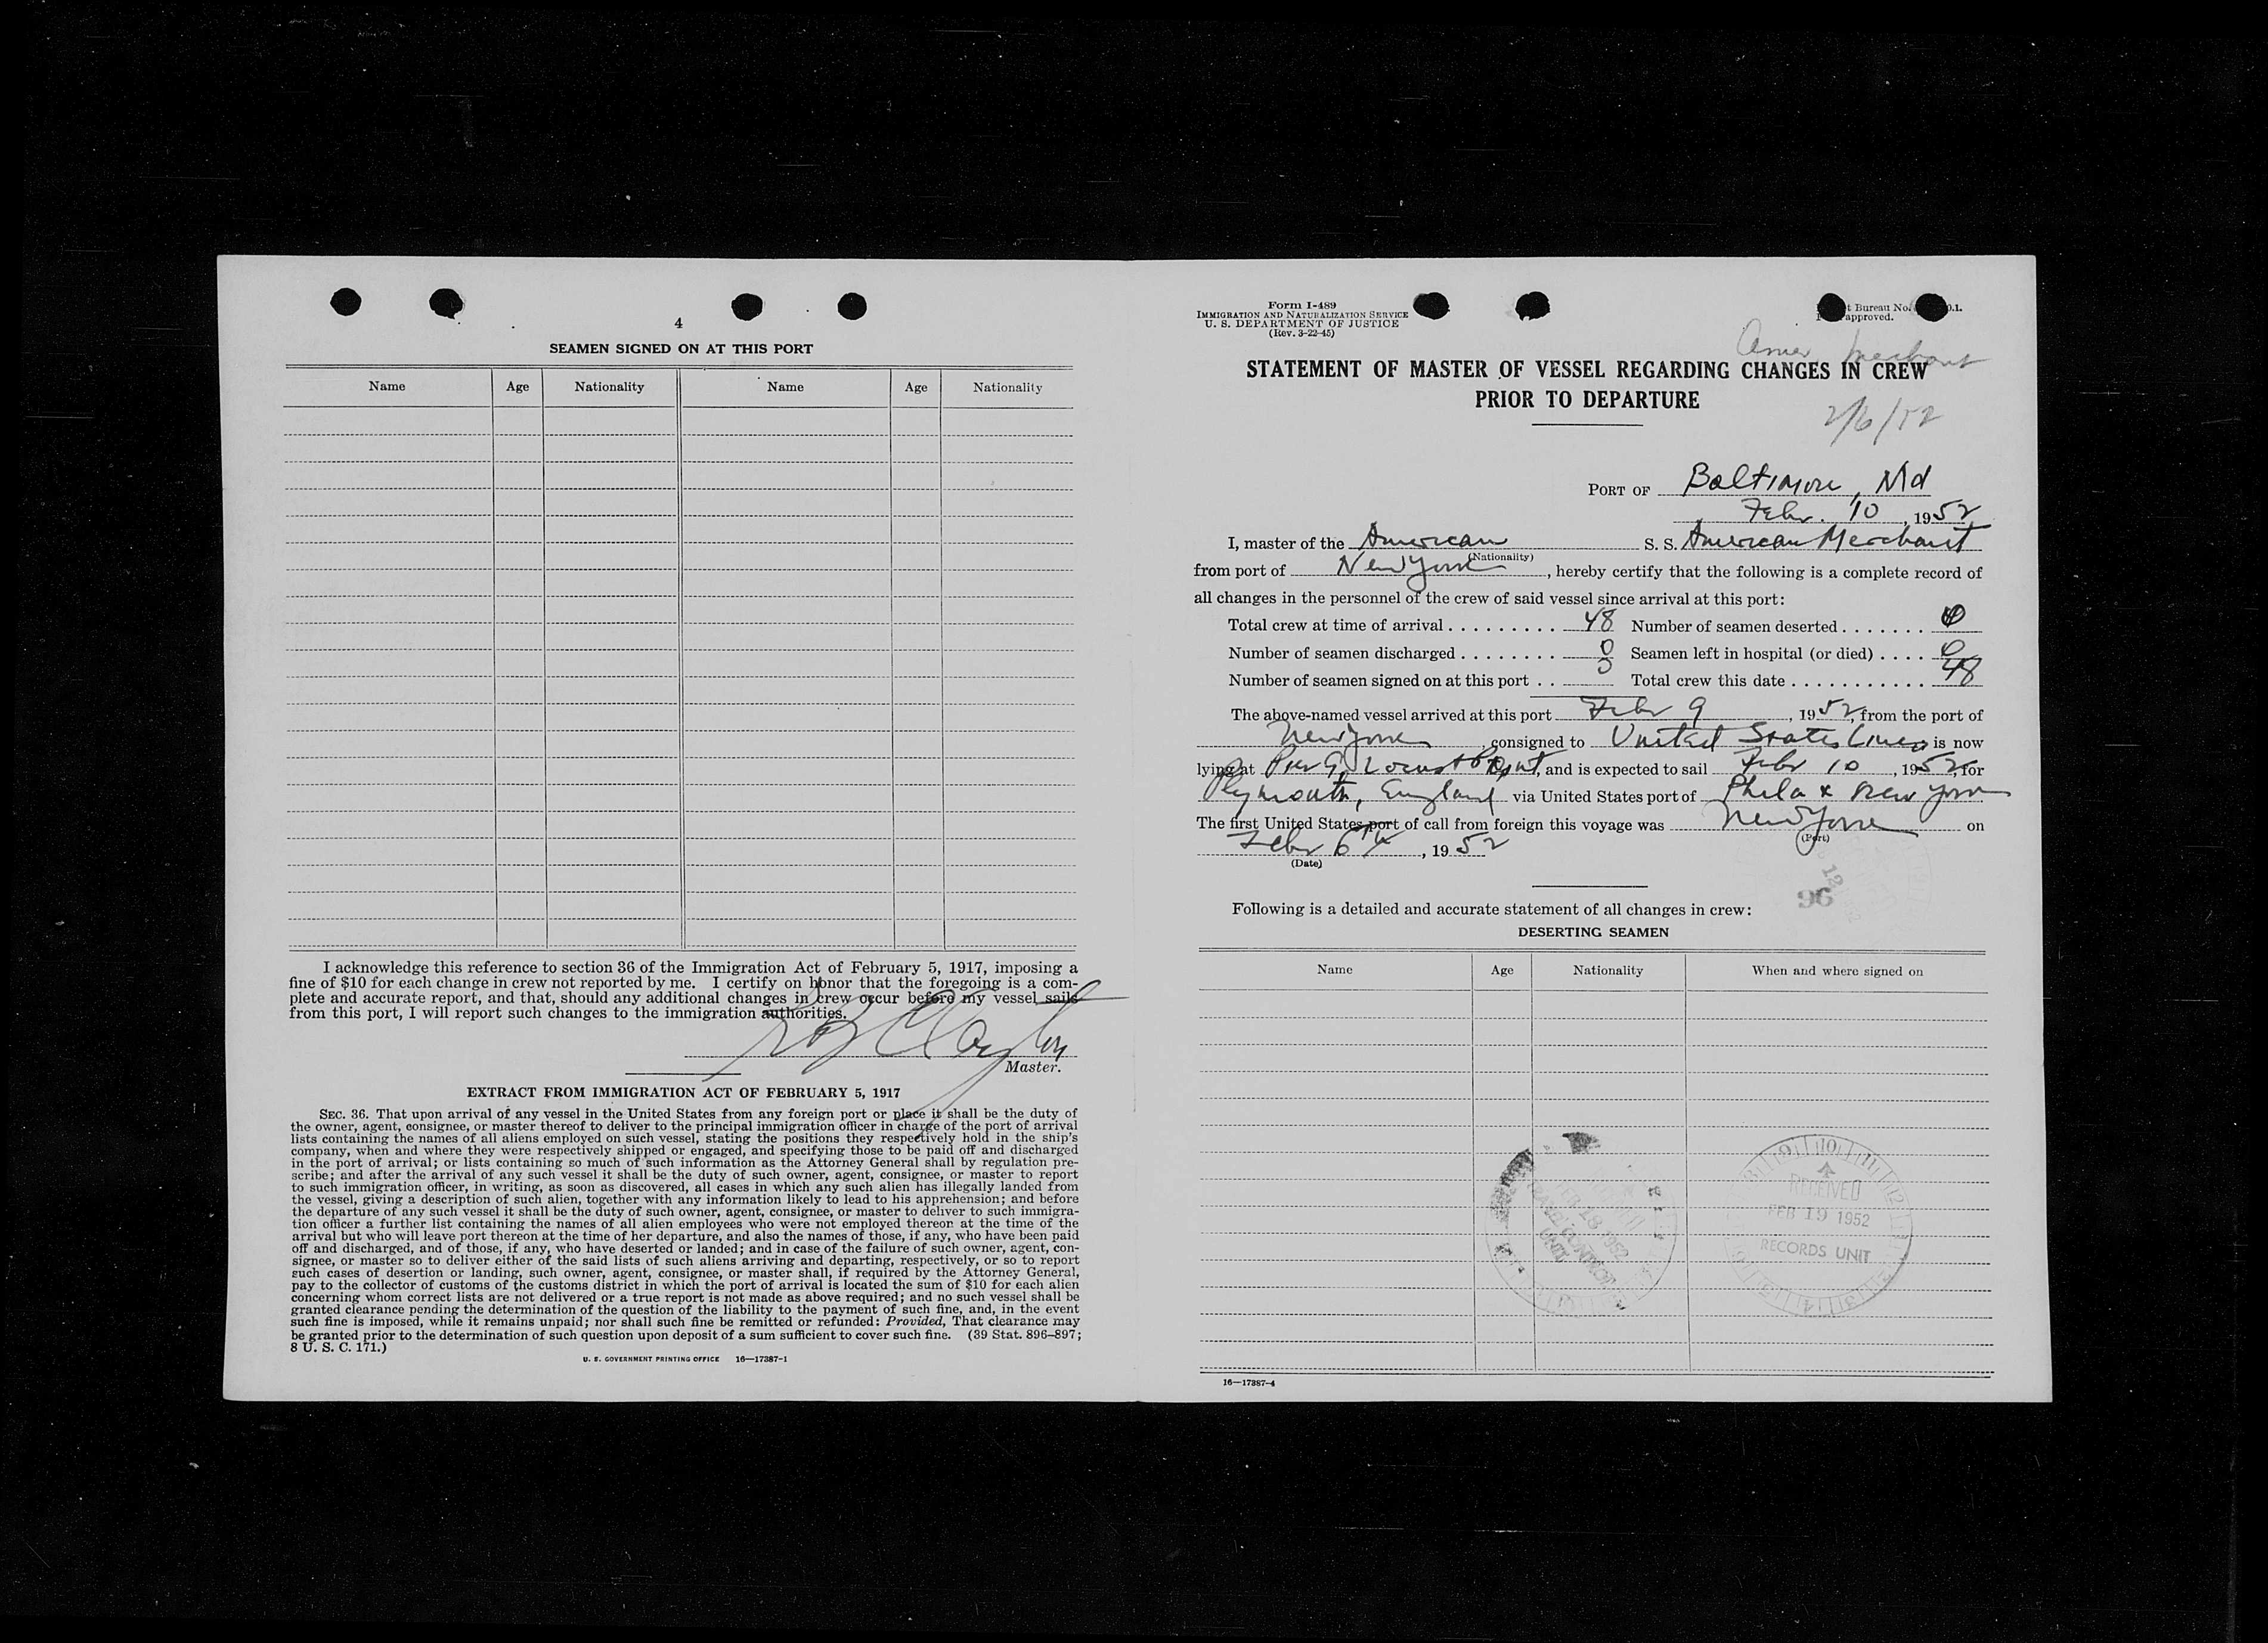 4
SEAMEN SIGNED ON AT THIS PORT
Name Age Nationality Name Age Nationality
I acknowledge this reference to section 36 of the Immigration Act of February 5, 1917, imposing a
fine of $10 for each change in crew not reported by me. I certify on honor that the foregoing is a com-
plete and accurate report, and that, should any additional changes in crew occur before my vessel sails
from this port, I will report such changes to the immigration authorities.
Master.
EXTRACT FROM IMMIGRATION ACT OF FEBRUARY 5, 1917
SEC. 36. That upon arrival of any vessel in the United States from any foreign port or place it shall be the duty of
the owner, agent, consignee, or master thereof to deliver to the principal immigration officer in charge of the port of arrival
lists containing the names of all aliens employed on such vessel, stating the positions they respectively hold in the ship's
company, when and where they were respectively shipped or engaged, and specifying those to be paid off and discharged
in the port of arrival; or lists containing so much of such information as the Attorney General shall by regulation pre-
scribe; and after the arrival of any such vessel it shall be the duty of such owner, agent, consignee, or master to report
to such immigration officer, in writing, as soon as discovered, all cases in which any such alien has illegally landed from
the vessel, giving a description of such alien, together with any information likely to lead to his apprehension; and before
the departure of any such vessel it shall be the duty of such owner, agent, consignee, or master to deliver to such immigra-
tion officer a further list containing the names of all alien employees who were not employed thereon at the time of the
arrival but who will leave port thereon at the time of her departure, and also the names of those, if any, who have been paid
off and discharged, and of those, if any, who have deserted or landed; and in case of the failure of such owner, agent, con-
signee, or master so to deliver either of the said lists of such aliens arriving and departing, respectively, or so to report
such cases of desertion or landing, such owner, agent, consignee, or master shall, if required by the Attorney General,
pay to the collector of customs of the customs district in which the port of arrival is located the sum of $10 for each alien
concerning whom correct lists are not delivered or a true report is not made as above required; and no such vessel shall be
granted clearance pending the determination of the question of the liability to the payment of such fine, and, in the event
such fine is imposed, while it remains unpaid; nor shall such fine be remitted or refunded: Provided, That clearance may
be granted prior to the determination of such question upon deposit of a sum sufficient to cover such fine. (39 Stat. 896–897;
8 U. S. C. 171.)
U. S. GOVERNMENT PRINTING OFFICE 16—17387-1
Form I-489
IMMIGRATION AND NATURALIZATION SERVICE
U. S. DEPARTMENT OF JUSTICE
(Rev. 3-22-45)
Bureau No. 
approved.
Amer Merchant
STATEMENT OF MASTER OF VESSEL REGARDING CHANGES IN CREW
PRIOR TO DEPARTURE
2/6/52
PORT OF Baltimore, Md
Febr. 10, 1952
I, master of the American S. S. American Merchant
(Nationality)
from port of New York, hereby certify that the following is a complete record of
all changes in the personnel of the crew of said vessel since arrival at this port:
Total crew at time of arrival 48 Number of seamen deserted 0
Number of seamen discharged 0 Seamen left in hospital (or died) 0
Number of seamen signed on at this port 0 Total crew this date 48
The above-named vessel arrived at this port Febr 9, 1952, from the port of
New York consigned to United States Lines is now
lying at Pier 9, Locust Point, and is expected to sail Febr 10, 1952, for
Plymouth, England via United States port of Phila & New York
The first United States port of call from foreign this voyage was New York on
(Port)
Febr 6th, 1952
(Date)
12
96
Following is a detailed and accurate statement of all changes in crew:
DESERTING SEAMEN
Name Age Nationality When and where signed on
FEB 18 1952
TRAVEL CONTROL
UNIT
RECEIVED
FEB 19 1952
RECORDS UNIT
16—17387-4